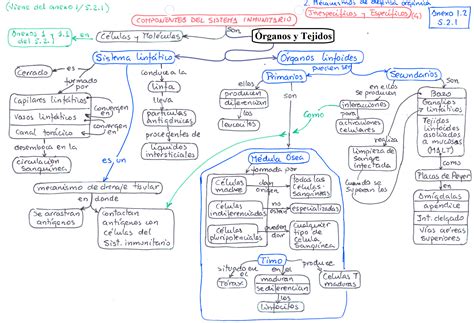 (Viene del anexo 1/5.2.1)
2. Mecanismos de defensa orgánica
(Inespecíficos y Específicos)
Anexo 1.2
5.2.1
COMPONENTES DEL SISTEMA INMUNITARIO
Anexos 1 y
del 5.2.1
Células y Moléculas
son
Órganos y Tejidos
Sistema linfático
Órganos linfoides
pueden ser
Cerrado
es
conduce a la
Primarios
Secundarios
formado
por
linfa
son
en ellos
se producen
son
Capilares linfáticos
lleva
ellos
producen
diferencian
los
leucocitos
interacciones
para
activaciones
celulares
Bazo
Ganglios
linfáticos
Tejidos
linfoides
asociados
a mucosas
(MALT)
convergen
en
Vasos linfáticos
partículas
antigénicas
Como
convergen
en
Canal torácico
procedentes
de
realiza
desemboca en la
líquidos
intersticiales
Limpieza de
sangre
infectada
como
circulación
sanguínea
Médula Ósea
Placas de Peyer
es un
formada por
cuando se superan los
en
mecanismo de drenaje tisular
Células
madre
dan
origen
Todas las
Células
Sanguíneas
Amígdalas
apéndice
Int. delgado
Vías aéreas
superiores
en donde
Células
indiferenciadas
no
especializadas
Se arrastran
antígenos
Contactan
antígenos con
células del
Sist. inmunitario
Células
pluripotenciales
Cualquier
tipo de
Célula
Sanguínea
Timo
situado
en el
en el
produce
Tórax
maduran
se diferencian
Células T
maduras
los
linfocitos